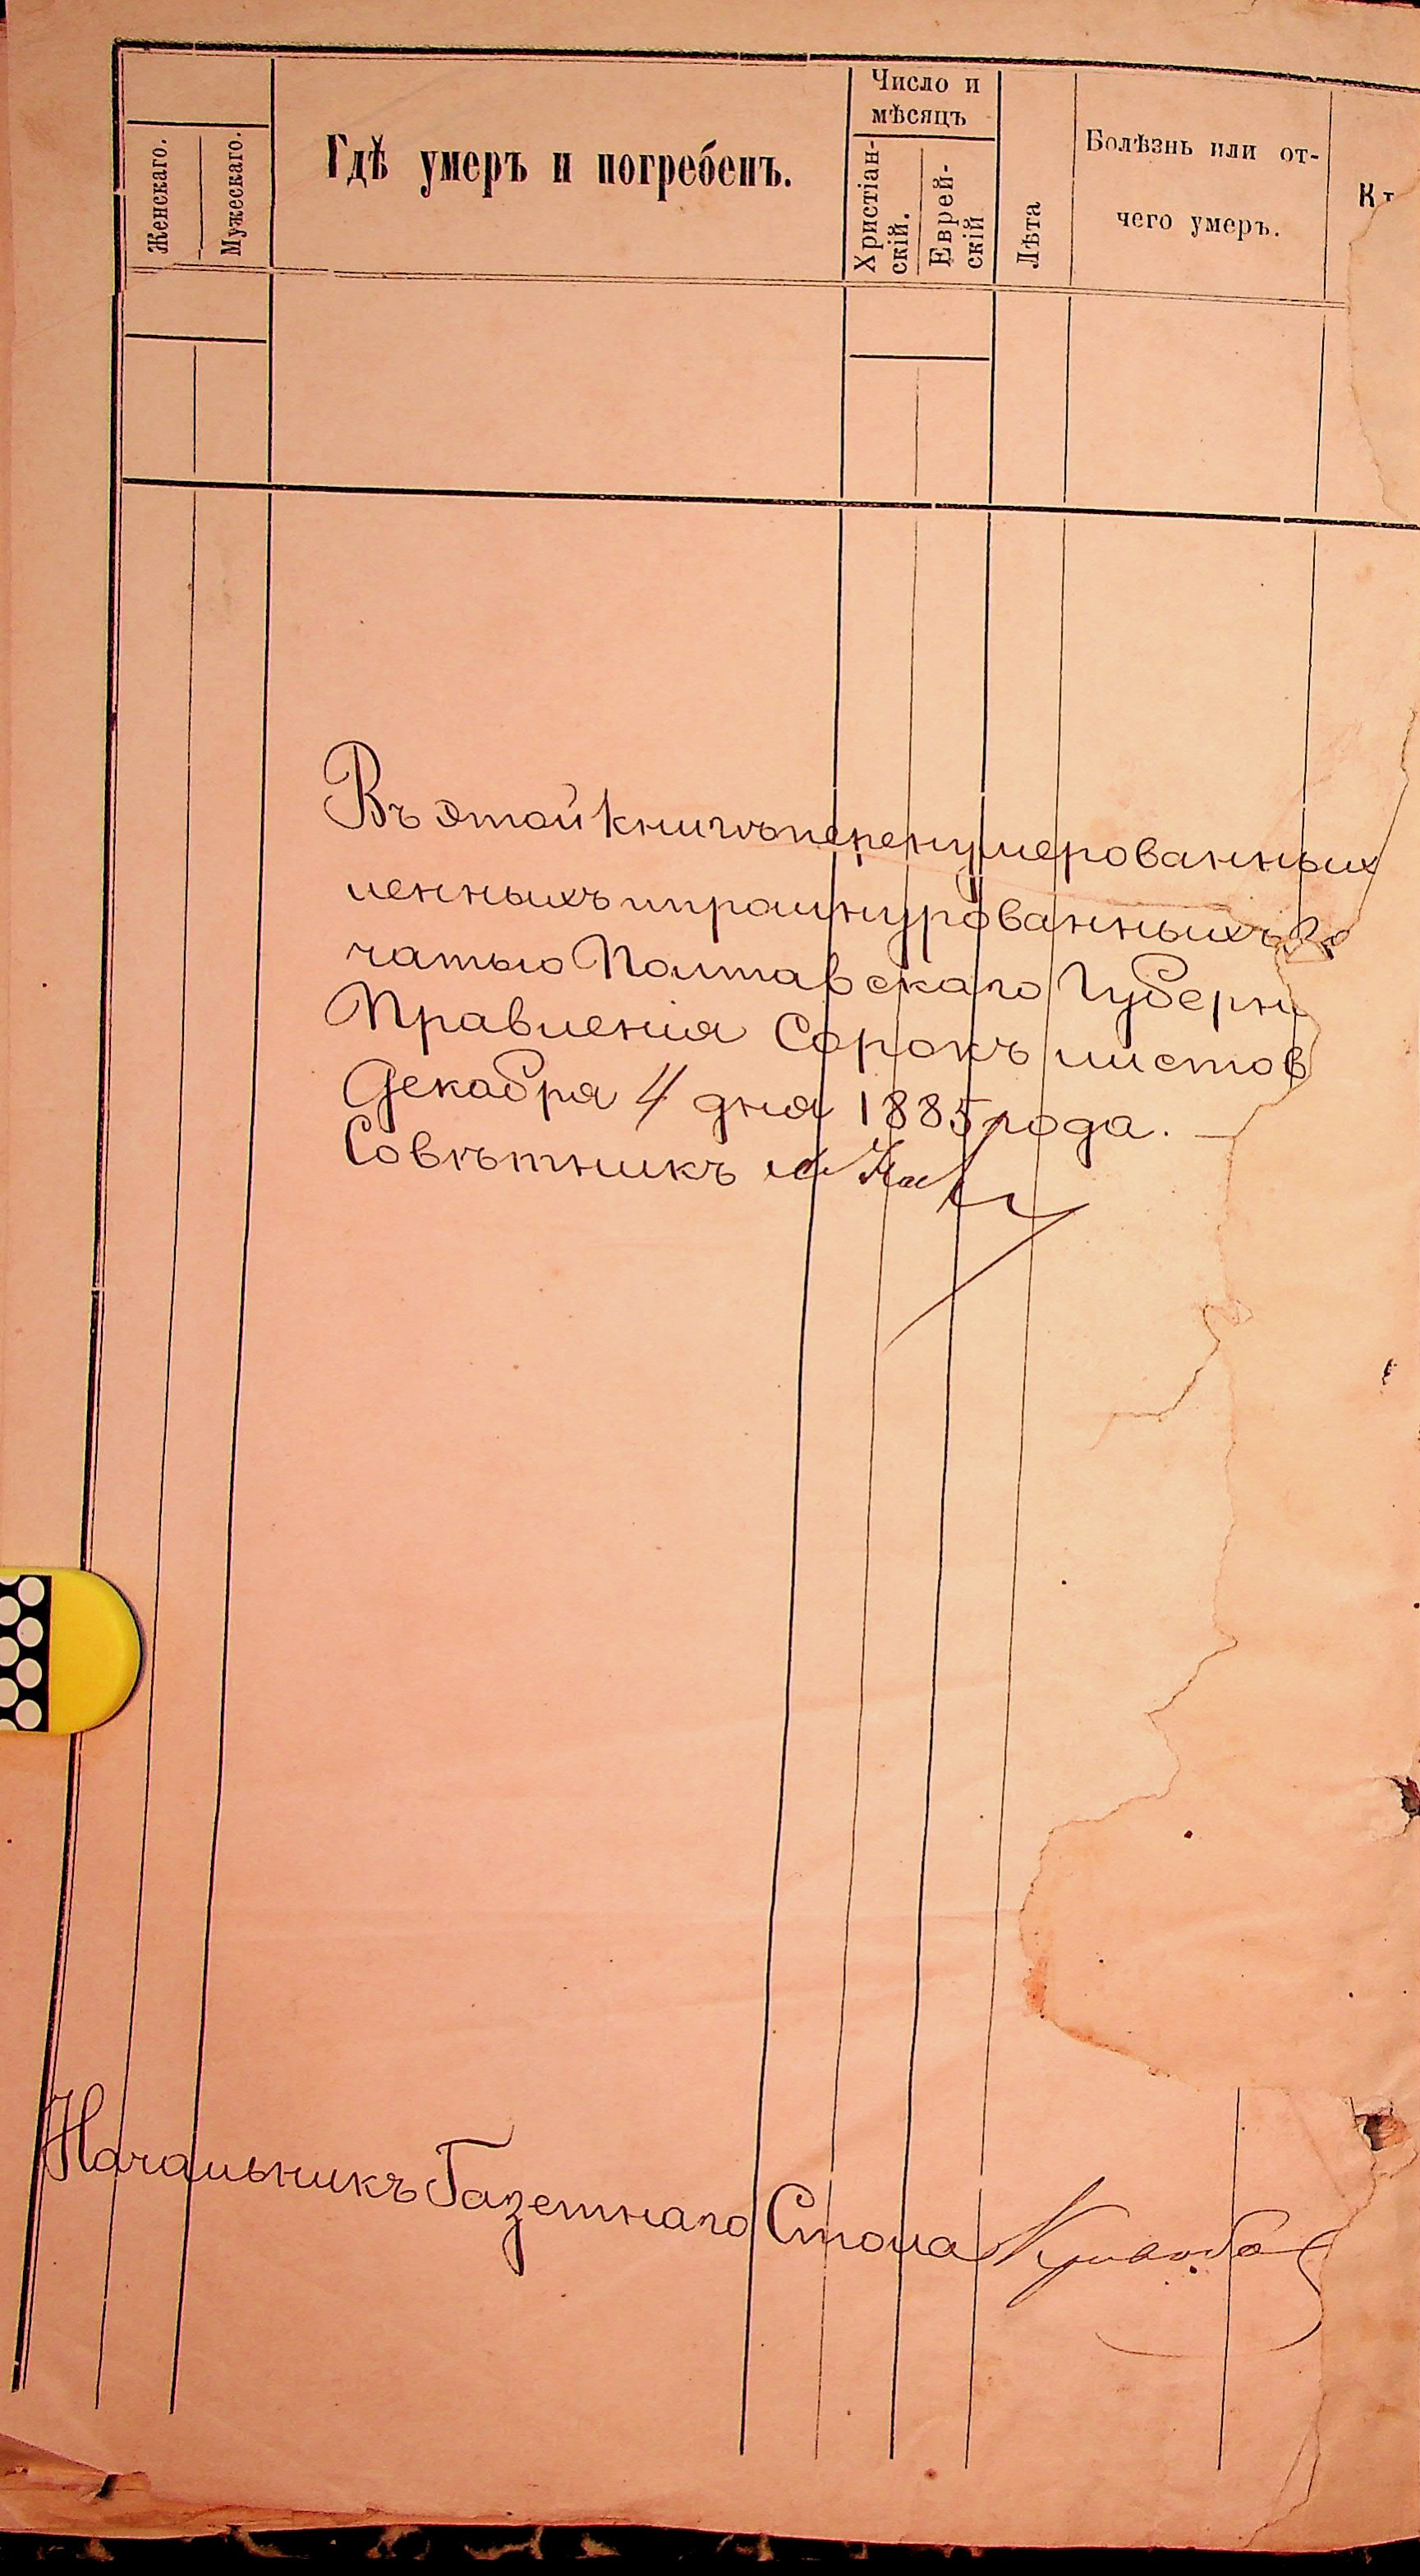 Женскаго.
Мужескаго.
Гдѣ умеръ и погребенъ.
Число и
мѣсяцъ
Христіан-
скій.
Еврей-
скій
Лѣта
Болѣзнь или от-
чего умеръ.
Въ этой книгѣ перенумерованныхъ
ленныхъ и прошнурованныхъ
чатью Полтавскаго Губерн
Правленія Сорокъ листов
Декабря 4 дня 1885 года. —
Совѣтникъ
Начальникъ Газетнаго Стола